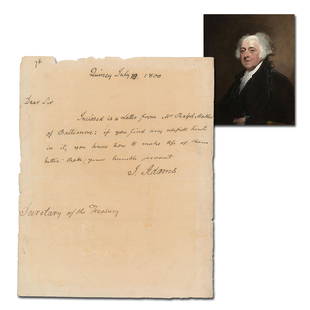 Quincy July 1800
Dear Sir
Inclosed is a Letter from Mr
of Baltimore: if you find any usefull hints
in it, you know how to make use of them
better than your humble servant
J. Adams
Secretary of the Treasury